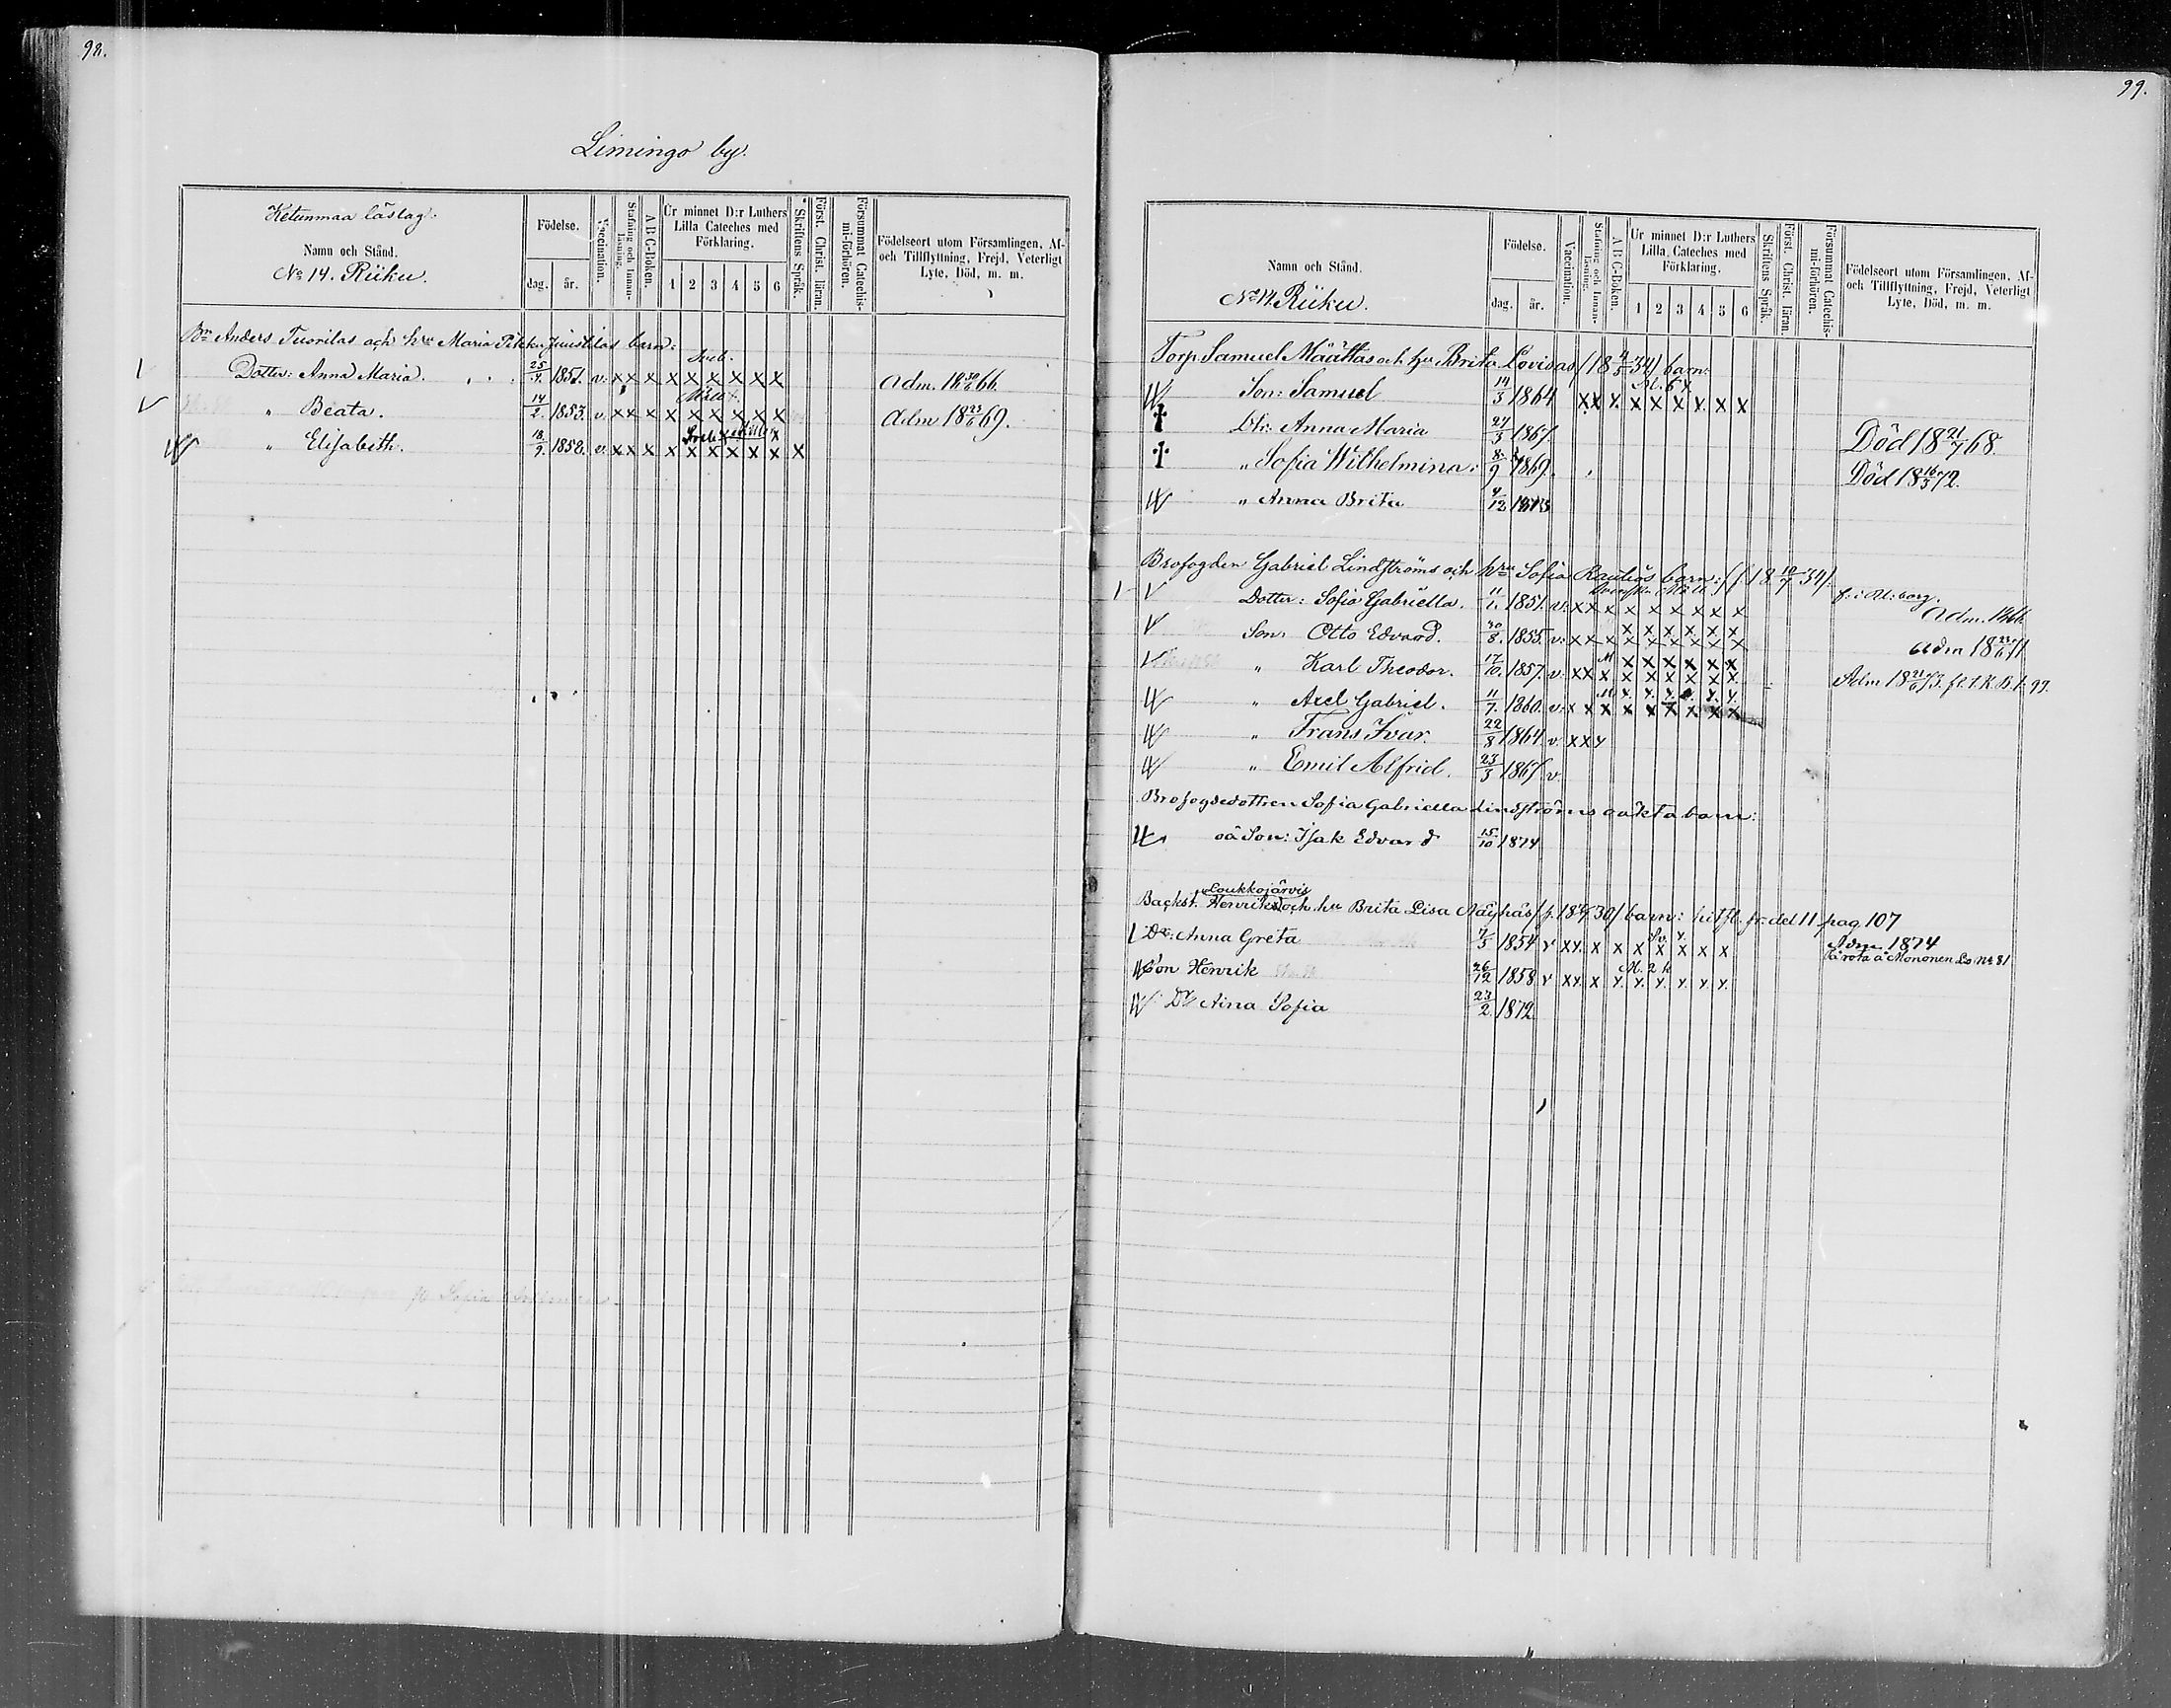 98.
Limingo by.
Ketunmaa läslag.
Namn och Stånd.
No 14. Riiku.
Födelse.
dag. år.
Vaccination.
Stafning och Innan-läsning.
A B C-Boken.
Ur minnet D:r Luthers
Lilla Cateches med
Förklaring.
1 2 3 4 5 6
Skriftens Språk.
Först. Christ. läran.
Försummat Catechis-mi-förhören.
Födelseort utom Församlingen, Af-
och Tillflyttning, Frejd, Veterligt
Lyte, Död, m. m.
Bn Anders Tuorilas och hru Maria barn:
Dotter: Anna Maria. 25/9. 1851. v. x x x x x x x x x Adm. 18 30/6 66.
" Beata. 14/2. 1853. v. x x x x x x x x x Adm 18 23/6 69.
" Elisabeth. 18/9. 1858. v. x x x x x x x x x x
99.
Namn och Stånd.
No 14 Riiku.
Födelse.
dag. år.
Vaccination.
Stafning och Innan-läsning.
A B C-Boken.
Ur minnet D:r Luthers
Lilla Cateches med
Förklaring.
1 2 3 4 5 6
Skriftens Språk.
Först. Christ. läran.
Försummat Catechis-mi-förhören.
Födelseort utom Församlingen, Af-
och Tillflyttning, Frejd, Veterligt
Lyte, Död, m. m.
Torp. Samuel Määttas och hu Brita Lovisas (18 4/5 34) barn:
Son: Samuel 14/3 1864 x x x x x x x x x
Dtr: Anna Maria 27/3 1867. Död 18 21/7 68.
" Sofia Wilhelmina: 8/9 1869. Död 18 16/3 72.
" Anna Brita 4/12 1873
Brofogden Gabriel Lindströms och hru Sofia Rautios barn: (f. 18 10/7 34).
Dotter: Sofia Gabriella. 11/1. 1851. v. x x x x x x x x x Adm. 1866
Son: Otto Edvard. 30/8. 1855. v. x x x x x x x x x Adm 18 22/6 71
" Karl Theodor. 17/10. 1857. v. x x x x x x x x x Adm 18 21/6 73.
" Axel Gabriel. 11/7. 1860. v. x x x x x x x x x
" Frans Ivar. 22/8 1864 v. x x x
" Emil Alfrid. 23/3 1867. v.
Brofogdedottren Sofia Gabriella Lindströms oäkta barn:
oä Son: Isak Edvard 15/10 1874
Loukkojärvis
Backst. Henriks och hu Brita Lisa Näyhäs barn: hitfl. fr. del 11 pag 107
Dr: Anna Greta 7/5 1854 v x x x x x x x x x Adm 1874
Son Henrik 26/12 1858 v x x x x x x x x x
Dr Aina Sofia 23/2 1872